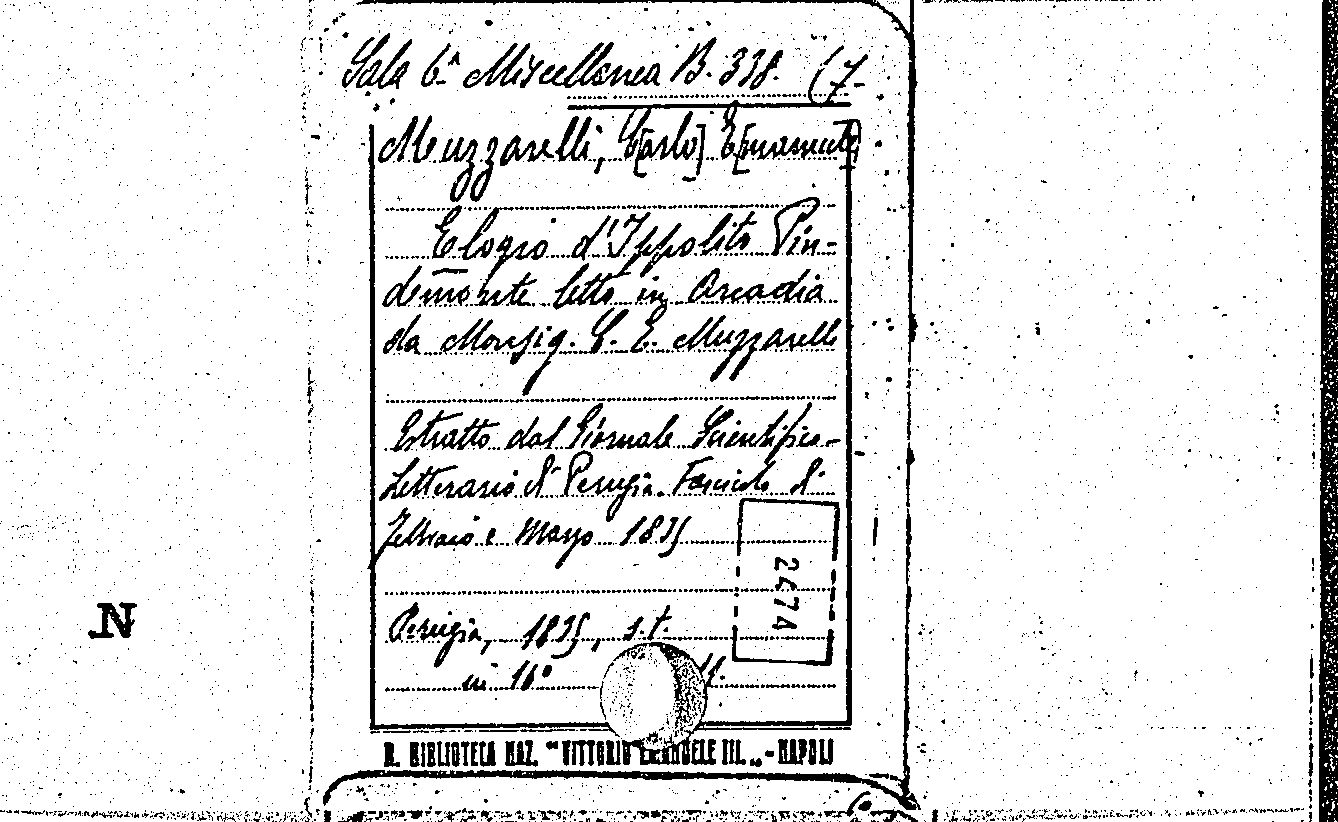 Sala 6.ª Miscellanea B. 338. (7.
Muzzarelli, C[arlo] E[manuele]
Elogio d'Ippolito Pin-
demonte letto in Arcadia
da Monsig. C. E. Muzzarelli
Estratto dal Giornale Scientifico-
Letterario di Perugia. Fascicolo di
Febbraio e Marzo 1835
2474
Perugia, 1835, s.t.
in 16º
.N
R. BIBLIOTECA NAZ. "VITTORIO EMANUELE III„ - NAPOLI